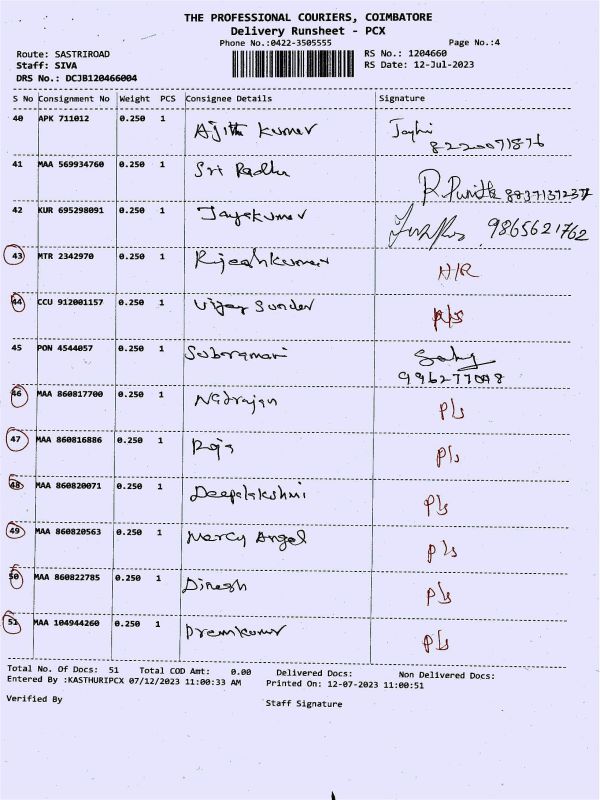 THE PROFESSIONAL COURIERS, COIMBATORE
Delivery Runsheet - PCX
Phone No.:0422-3505555 Page No.:4
Route: SASTRIROAD RS No.: 1204660
Staff: SIVA RS Date: 12-Jul-2023
DRS No.: DCJB120466004
S No Consignment No Weight PCS Consignee Details Signature
40 APK 711012 0.250 1 Ajith Kumar
8220071876
41 MAA 569934760 0.250 1 Sri Radha
R. Punith 8837137237
42 KUR 695298091 0.250 1 Jayakumar 9865621762
43 MTR 2342970 0.250 1 Rijeshkumar H/R
44 CCU 912001157 0.250 1 Vijay Sunder P/s
45 PON 4544057 0.250 1 Subramani
46 MAA 860817700 0.250 1 Natrajan P/s
47 MAA 860816886 0.250 1 Raja P/s
48 MAA 860820071 0.250 1 Deepalakshmi P/s
49 MAA 860820563 0.250 1 Mercy Angel P/s
50 MAA 860822785 0.250 1 Dinesh P/s
51 MAA 104944260 0.250 1 Premkumar P/s
Total No. Of Docs: 51 Total COD Amt: 0.00 Delivered Docs: Non Delivered Docs:
Entered By :KASTHURIPCX 07/12/2023 11:00:33 AM Printed On: 12-07-2023 11:00:51
Verified By Staff Signature